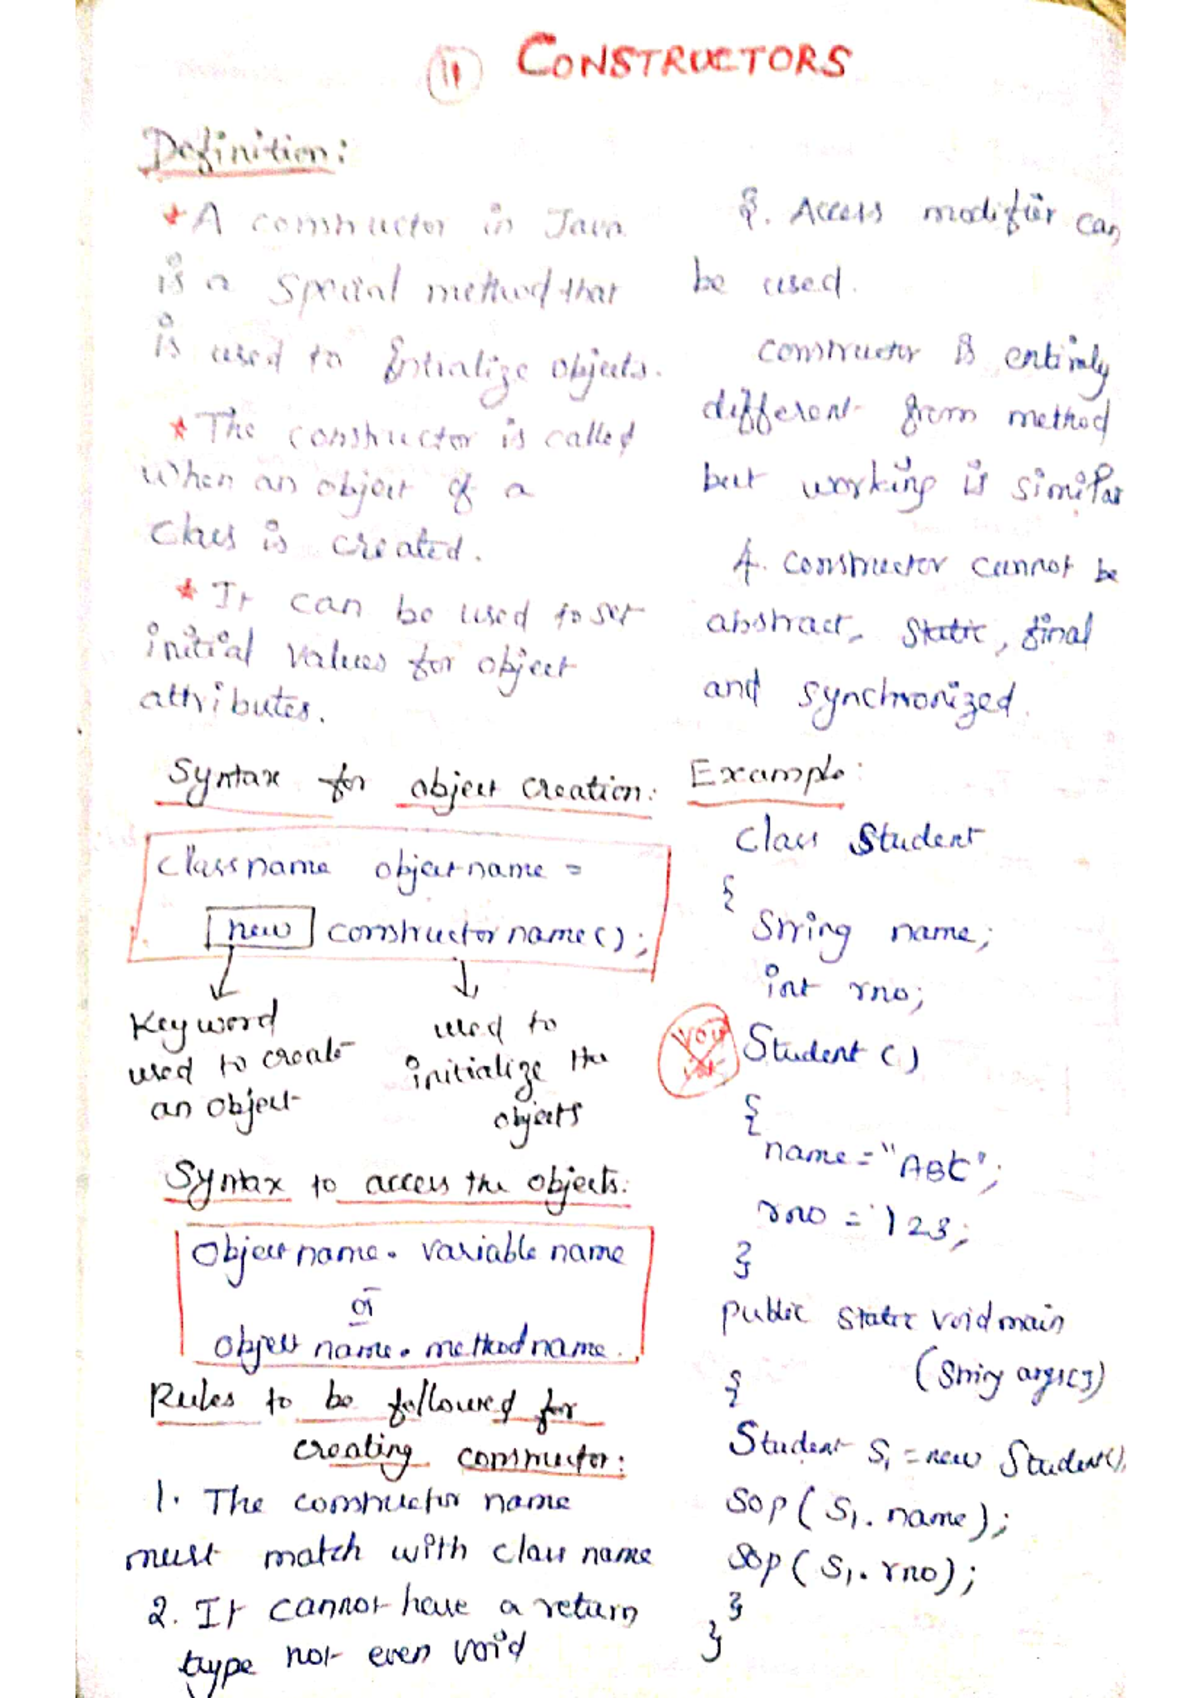 11 CONSTRUCTORS
Definition:
* A constructor in Java
is a special method that
is used to Intialize objects.
* The constructor is called
when an object of a
class is created.
* It can be used to set
initial values for object
attributes.
Syntax for object creation:
Class name object name =
new constructor name();
Keyword
used to create
an object
used to
initialize the
objects
Syntax to access the objects:
Object name. variable name
or
object name. method name.
Rules to be followed for
creating constructor:
1. The constructor name
must match with class name
2. It cannot have a return
type not even void
3. Access modifier can
be used.
constructor is entirely
different from method
but working is similar
4. Constructor cannot be
abstract, static, final
and synchronized.
Example:
Class Student
{
String name;
int rno;
Student ()
{
name = "ABC";
rno = 123;
}
public static void main
(String args[])
{
Student S1 = new Student();
Sop (S1. name);
Sop (S1. rno);
}
}